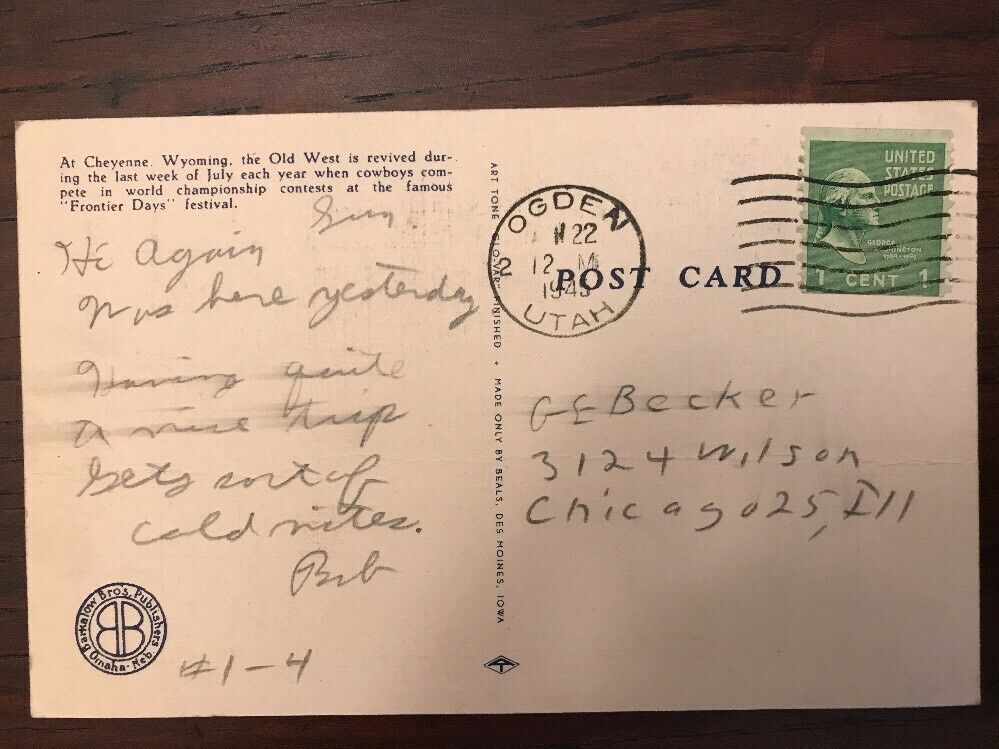 At Cheyenne, Wyoming, the Old West is revived dur-
ing the last week of July each year when cowboys com-
pete in world championship contests at the famous
"Frontier Days" festival.
Sun
Hi Again
Was here yesterday
Having quite
a nice trip
Gets sort of
cold nites.
Bob
Barkalow Bros. Publishers
Omaha-Neb
BB
#1-4
ART TONE "GLO-VAR" FINISHED • MADE ONLY BY BEALS, DES MOINES, IOWA
OGDEN
2
22
12 M
194
UTAH
POST CARD
UNITED
STATES
POSTAGE
GEORGE
WASHINGTON
1789-1797
1 CENT 1
GE Becker
3124 Wilson
Chicago 25, Ill